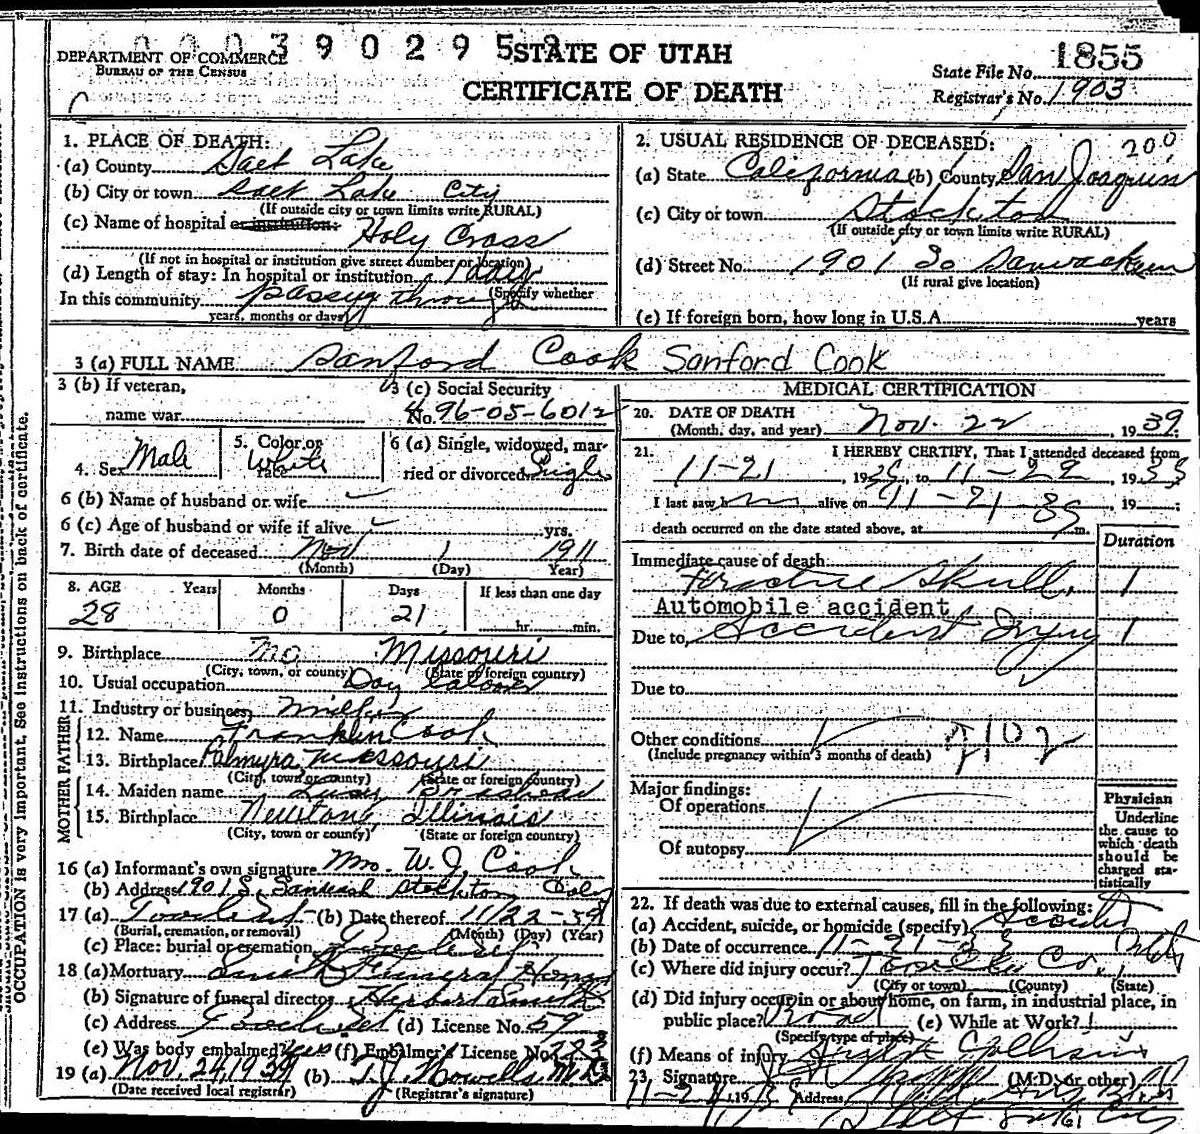 0003902952
STATE OF UTAH
CERTIFICATE OF DEATH
DEPARTMENT OF COMMERCE
BUREAU OF THE CENSUS
State File No. 1855
Registrar's No. 1903
1. PLACE OF DEATH:
(a) County Salt Lake
(b) City or town Salt Lake City
(If outside city or town limits write RURAL)
(c) Name of hospital or institution: Holy Cross
(If not in hospital or institution give street number or location)
(d) Length of stay: In hospital or institution 1 day
(Specify whether
In this community passing through
years, months or days)
2. USUAL RESIDENCE OF DECEASED: 200
(a) State California (b) County San Joaquin
(c) City or town Stockton
(If outside city or town limits write RURAL)
(d) Street No. 1901 So
(If rural give location)
(e) If foreign born, how long in U.S.A. years
3 (a) FULL NAME Sanford Cook Sanford Cook
3 (b) If veteran,
name war
3 (c) Social Security
No. 496-05-6012
4. Sex Male
5. Color or race White
6 (a) Single, widowed, mar-
ried or divorced Single
6 (b) Name of husband or wife
6 (c) Age of husband or wife if alive yrs.
7. Birth date of deceased Nov 1 1911
(Month) (Day) Year)
8. AGE Years Months Days If less than one day
28 0 21 hr. min.
9. Birthplace Mo. Missouri
(City, town, or county) (State or foreign country)
10. Usual occupation Day Laborer
11. Industry or business
FATHER
12. Name Franklin Cook
13. Birthplace Palmyra Missouri
(City, town or county) (State or foreign country)
MOTHER
14. Maiden name
15. Birthplace Newton, Illinois
(City, town or county) (State or foreign country)
16 (a) Informant's own signature Mrs. W. J. Cook
(b) Address 1901 S. Stockton Calif
17 (a) (b) Date thereof 11/22-39
(Burial, cremation, or removal) (Month) (Day) (Year)
(c) Place: burial or cremation
18 (a) Mortuary Smith Funeral Home
(b) Signature of funeral director Herbert Smith
(c) Address (d) License No. 59
(e) Was body embalmed? Yes (f) Embalmer's License No. 223
19 (a) Nov. 24, 1939 (b) T. J. Howells M.D.
(Date received local registrar) (Registrar's signature)
MEDICAL CERTIFICATION
20. DATE OF DEATH
(Month, day, and year) Nov. 22, 1939
21. I HEREBY CERTIFY, That I attended deceased from
11-21, 1939, to 11-22, 1939
I last saw h alive on 11-21-39, 19
death occurred on the date stated above, at m.
Duration
Immediate cause of death
Fracture Skull 1
Automobile accident
Due to Accident Injury 1
Due to
Other conditions
(Include pregnancy within 3 months of death)
Major findings:
Of operations
Of autopsy
Physician
Underline
the cause to
which death
should be
charged sta-
tistically
22. If death was due to external causes, fill in the following:
(a) Accident, suicide, or homicide (specify) Accident
(b) Date of occurrence 11-21-39
(c) Where did injury occur? Tooele Co., Utah
(City or town) (County) (State)
(d) Did injury occur in or about home, on farm, in industrial place, in
public place? Road (e) While at Work?
(Specify type of place)
(f) Means of injury
23. Signature (M.D. or other)
Address
OCCUPATION is very important. See instructions on back of certificate.